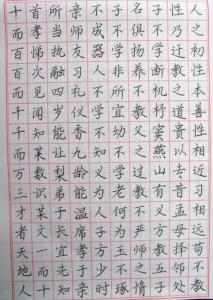 人之初性本善性相近习相远苟不教
性乃迁教之道贵以专昔孟母择邻处
子不学断机杼窦燕山有义方教五子
名俱扬养不教父之过教不严师之惰
子不学非所宜幼不学老何为玉不琢
不成器人不学不知义为人子方少时
亲师友习礼仪香九龄能温席孝于亲
所当执融四岁能让梨弟于长宜先知
首孝悌次见闻知某数识某文一而十
十而百百而千千而万三才者天地人